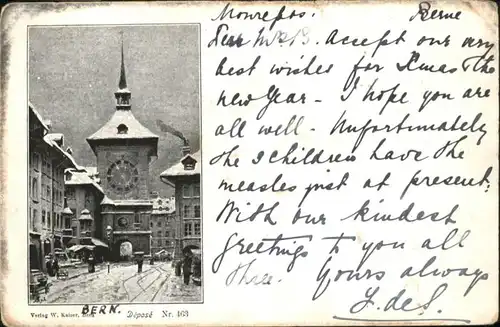 Monrepos. Berne
Dear Mrs B. Accept our very
best wishes for Xmas & the
new Year - I hope you are
all well. - Unfortunately
the 3 children have the
measles just at present.
With our kindest
greetings to you all
three. Yours always
J. de S.
BERN.
Verlag W. Kaiser, Bern Déposé Nr. 163